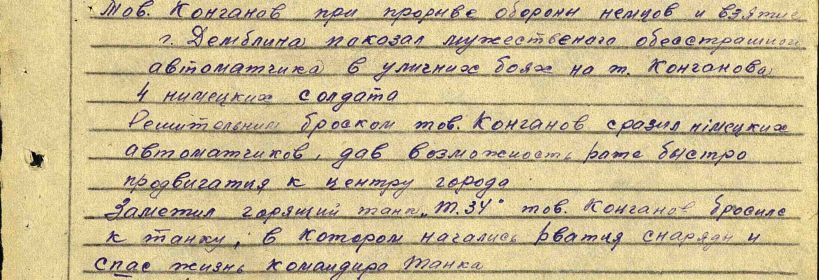 Тов. Конганов при прорыве обороны немцов и взятие
г. Демблина показал мужественого обесстрашного
автоматчика в уличних боях на т. Конганова
4 нимецких солдата
Решительним броском тов. Конганов сразил німецких
автоматчиков, дав возможность рате быстро
продвигатия к центру города
Заметил горящий танк „Т.34" тов. Конганов бросилс
к танку, в котором начались рватия снаряди и
спас жизнь командира танка